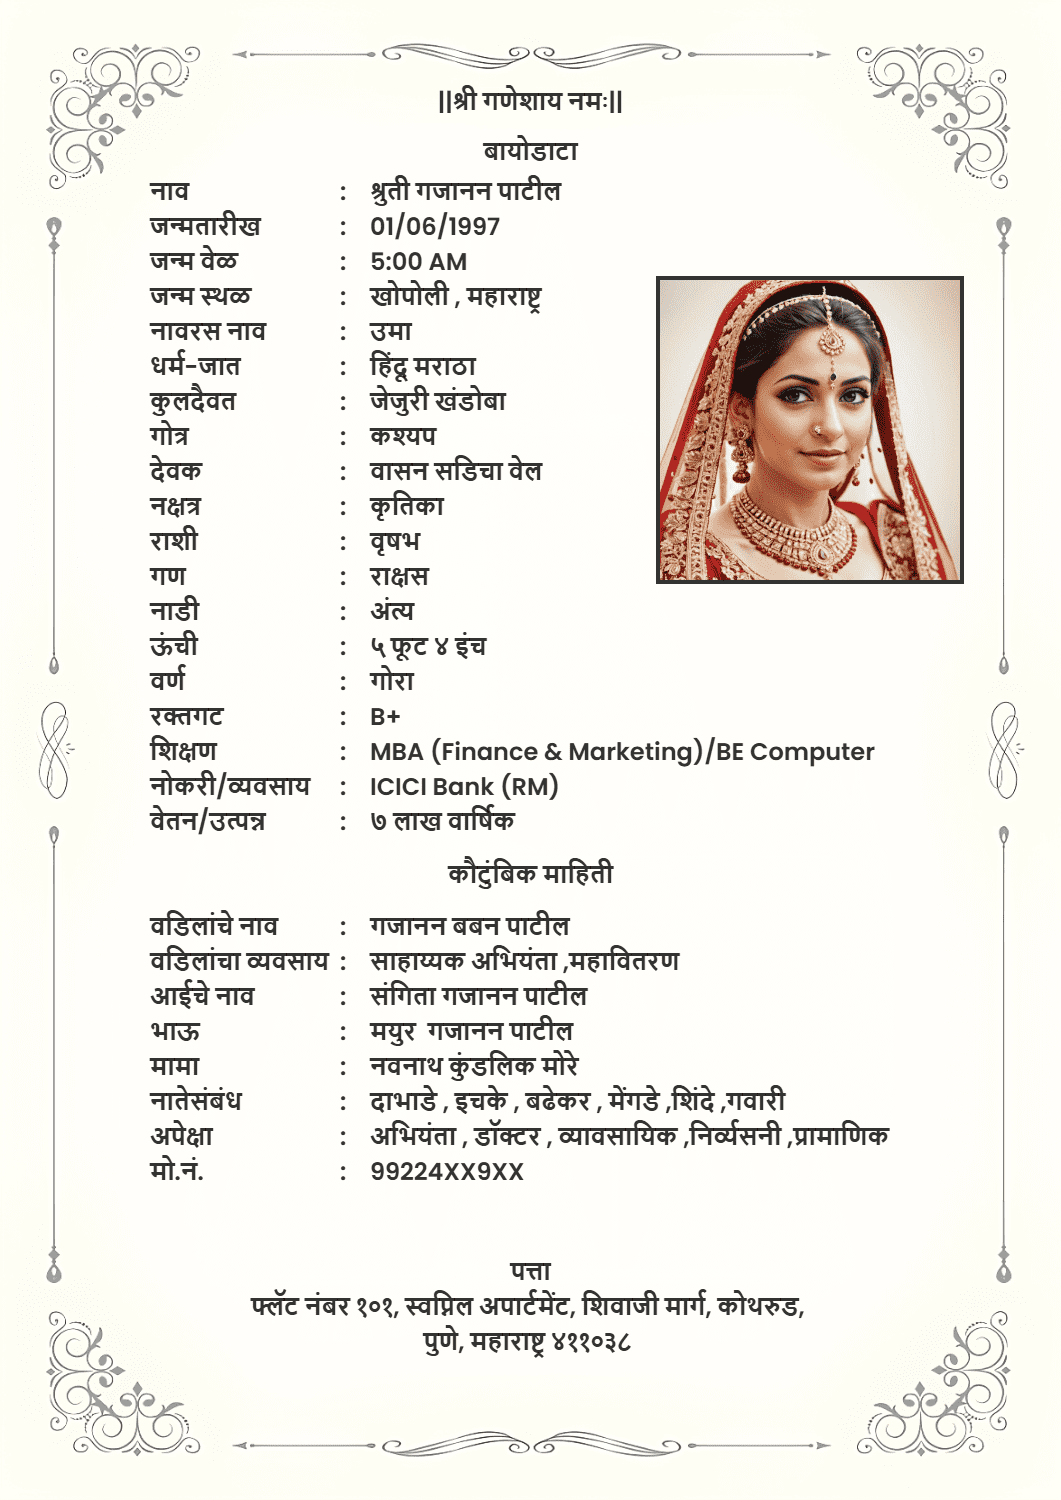 ||श्री गणेशाय नमः||
बायोडाटा
नाव : श्रुती गजानन पाटील
जन्मतारीख : 01/06/1997
जन्म वेळ : 5:00 AM
जन्म स्थळ : खोपोली , महाराष्ट्र
नावरस नाव : उमा
धर्म-जात : हिंदू मराठा
कुलदैवत : जेजुरी खंडोबा
गोत्र : कश्यप
देवक : वासन सडिचा वेल
नक्षत्र : कृतिका
राशी : वृषभ
गण : राक्षस
नाडी : अंत्य
ऊंची : ५ फूट ४ इंच
वर्ण : गोरा
रक्तगट : B+
शिक्षण : MBA (Finance & Marketing)/BE Computer
नोकरी/व्यवसाय : ICICI Bank (RM)
वेतन/उत्पन्न : ७ लाख वार्षिक
कौटुंबिक माहिती
वडिलांचे नाव : गजानन बबन पाटील
वडिलांचा व्यवसाय : साहाय्यक अभियंता ,महावितरण
आईचे नाव : संगिता गजानन पाटील
भाऊ : मयुर गजानन पाटील
मामा : नवनाथ कुंडलिक मोरे
नातेसंबंध : दाभाडे , इचके , बढेकर , मेंगडे ,शिंदे ,गवारी
अपेक्षा : अभियंता , डॉक्टर , व्यावसायिक ,निर्व्यसनी ,प्रामाणिक
मो.नं. : 99224XX9XX
पत्ता
फ्लॅट नंबर १०१, स्वप्निल अपार्टमेंट, शिवाजी मार्ग, कोथरुड,
पुणे, महाराष्ट्र ४११०३८